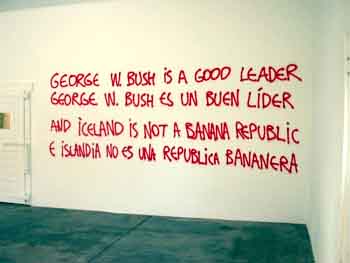 GEORGE W. BUSH iS A GOOD LEADER
GEORGE W. BUSH ES UN BUEN LÍDER
AND iCELAND iS NOT A BANANA REPUBLIC
E iSLANDIA NO ES UNA REPUBLICA BANANERA